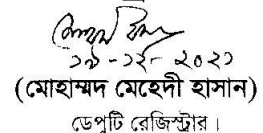 ১৯-১২-২০২১
(মোহাম্মদ মেহেদী হাসান)
ডেপুটি রেজিস্ট্রার।